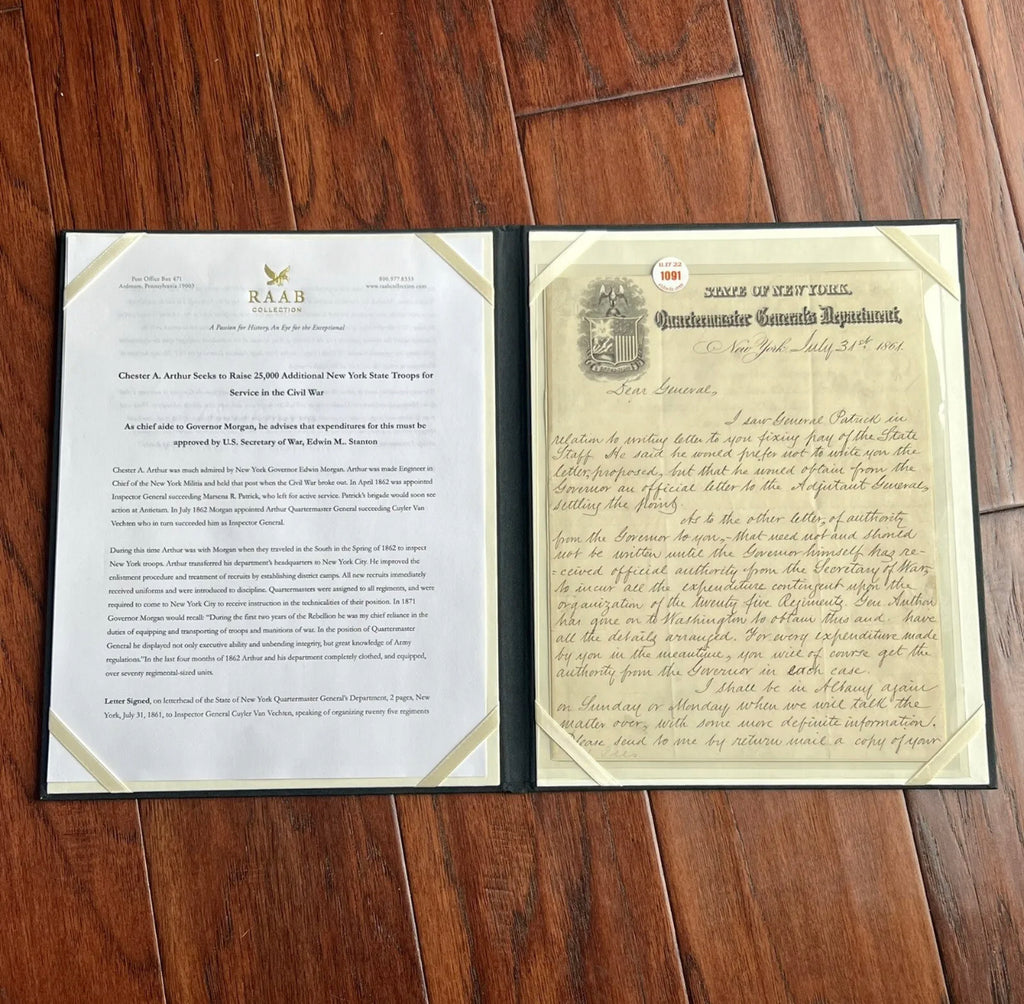 Post Office Box 471
Ardmore, Pennsylvania 19003
800.977.8333
www.raabcollection.com
RAAB
COLLECTION
A Passion for History, An Eye for the Exceptional
Chester A. Arthur Seeks to Raise 25,000 Additional New York State Troops for
Service in the Civil War
As chief aide to Governor Morgan, he advises that expenditures for this must be
approved by U.S. Secretary of War, Edwin M.. Stanton
Chester A. Arthur was much admired by New York Governor Edwin Morgan. Arthur was made Engineer in
Chief of the New York Militia and held that post when the Civil War broke out. In April 1862 was appointed
Inspector General succeeding Marsena R. Patrick, who left for active service. Patrick's brigade would soon see
action at Antietam. In July 1862 Morgan appointed Arthur Quartermaster General succeeding Cuyler Van
Vechten who in turn succeeded him as Inspector General.
During this time Arthur was with Morgan when they traveled in the South in the Spring of 1862 to inspect
New York troops. Arthur transferred his department's headquarters to New York City. He improved the
enlistment procedure and treatment of recruits by establishing district camps. All new recruits immediately
received uniforms and were introduced to discipline. Quartermasters were assigned to all regiments, and were
required to come to New York City to receive instruction in the technicalities of their position. In 1871
Governor Morgan would recall: "During the first two years of the Rebellion he was my chief reliance in the
duties of equipping and transporting of troops and munitions of war. In the position of Quartermaster
General he displayed not only executive ability and unbending integrity, but great knowledge of Army
regulations."In the last four months of 1862 Arthur and his department completely clothed, and equipped,
over seventy regimental-sized units.
Letter Signed, on letterhead of the State of New York Quartermaster General's Department, 2 pages, New
York, July 31, 1861, to Inspector General Cuyler Van Vechten, speaking of organizing twenty five regiments
1091
STATE OF NEW YORK,
Quartermaster General's Department,
New York July 31st 1861.
Dear General,
I saw General Patrick in
relation to writing letter to you fixing pay of the State
Staff. He said he would prefer not to write you the
letter, proposed, but that he would obtain from the
Governor an official letter to the Adjutant General,
settling the point.
As to the other letter, of authority
from the Governor to you,- that need not and should
not be written until the Governor himself has re-
=ceived official authority from the Secretary of War,
to incur all the expenditure contingent upon the
organization of the twenty five Regiments. Gen. Arthur
has gone on to Washington to obtain this and have
all the details arranged. For every expenditure made
by you in the meantime, you will of course get the
authority from the Governor in each case.
I shall be in Albany again
on Sunday or Monday when we will talk the
matter over, with some more definite information.
Please send to me by return mail a copy of your